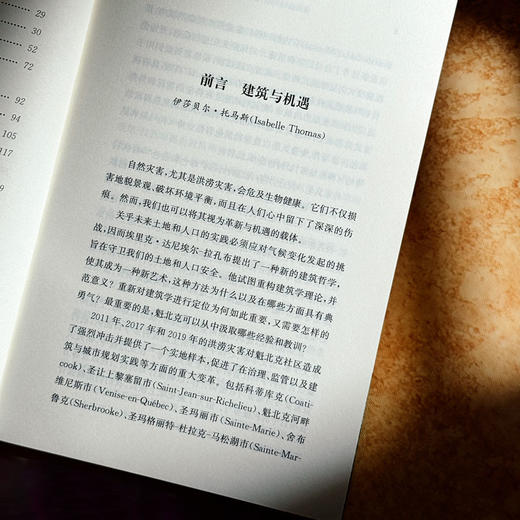 29
30
52
72
92
94
105
117
前言　建筑与机遇
伊莎贝尔·托马斯(Isabelle Thomas)
自然灾害,尤其是洪涝灾害,会危及生物健康。它们不仅损
害地貌景观、破坏环境平衡,而且在人们心中留下了深深的伤
痕。然而,我们也可以将其视为革新与机遇的载体。
关乎未来土地和人口的实践必须应对气候变化发起的挑
战,因而埃里克·达尼埃尔-拉孔布提出了一种新的建筑哲学,
旨在守卫我们的土地和人口安全。他试图重构建筑学理论,并
使其成为一种新艺术,这种方法为什么以及在哪些方面具有典
范意义?重新对建筑学进行定位为何如此重要,又需要怎样的
勇气?最重要的是,魁北克可以从中汲取哪些经验和教训?
2011年、2017年和2019年的洪涝灾害对魁北克社区造成
了强烈冲击并提供了一个实地样本,促进了在治理、监管以及建
筑与城市规划实践等方面的重大变革。包括科蒂库克(Coati-
cook)、圣让上黎塞留市(Saint-Jean-sur-Richelieu)、魁北克河畔
维尼斯市(Venise-en-Québec)、圣玛丽市(Sainte-Marie)、舍布
鲁克(Sherbrooke)、圣玛格丽特-杜拉克-马松湖市(Sainte-Mar-